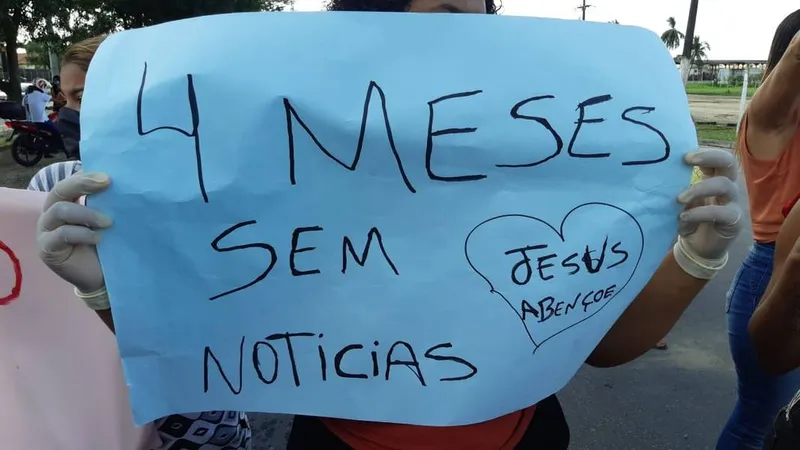 4 MESES
SEM
NOTICIAS
JESUS
ABENÇOE